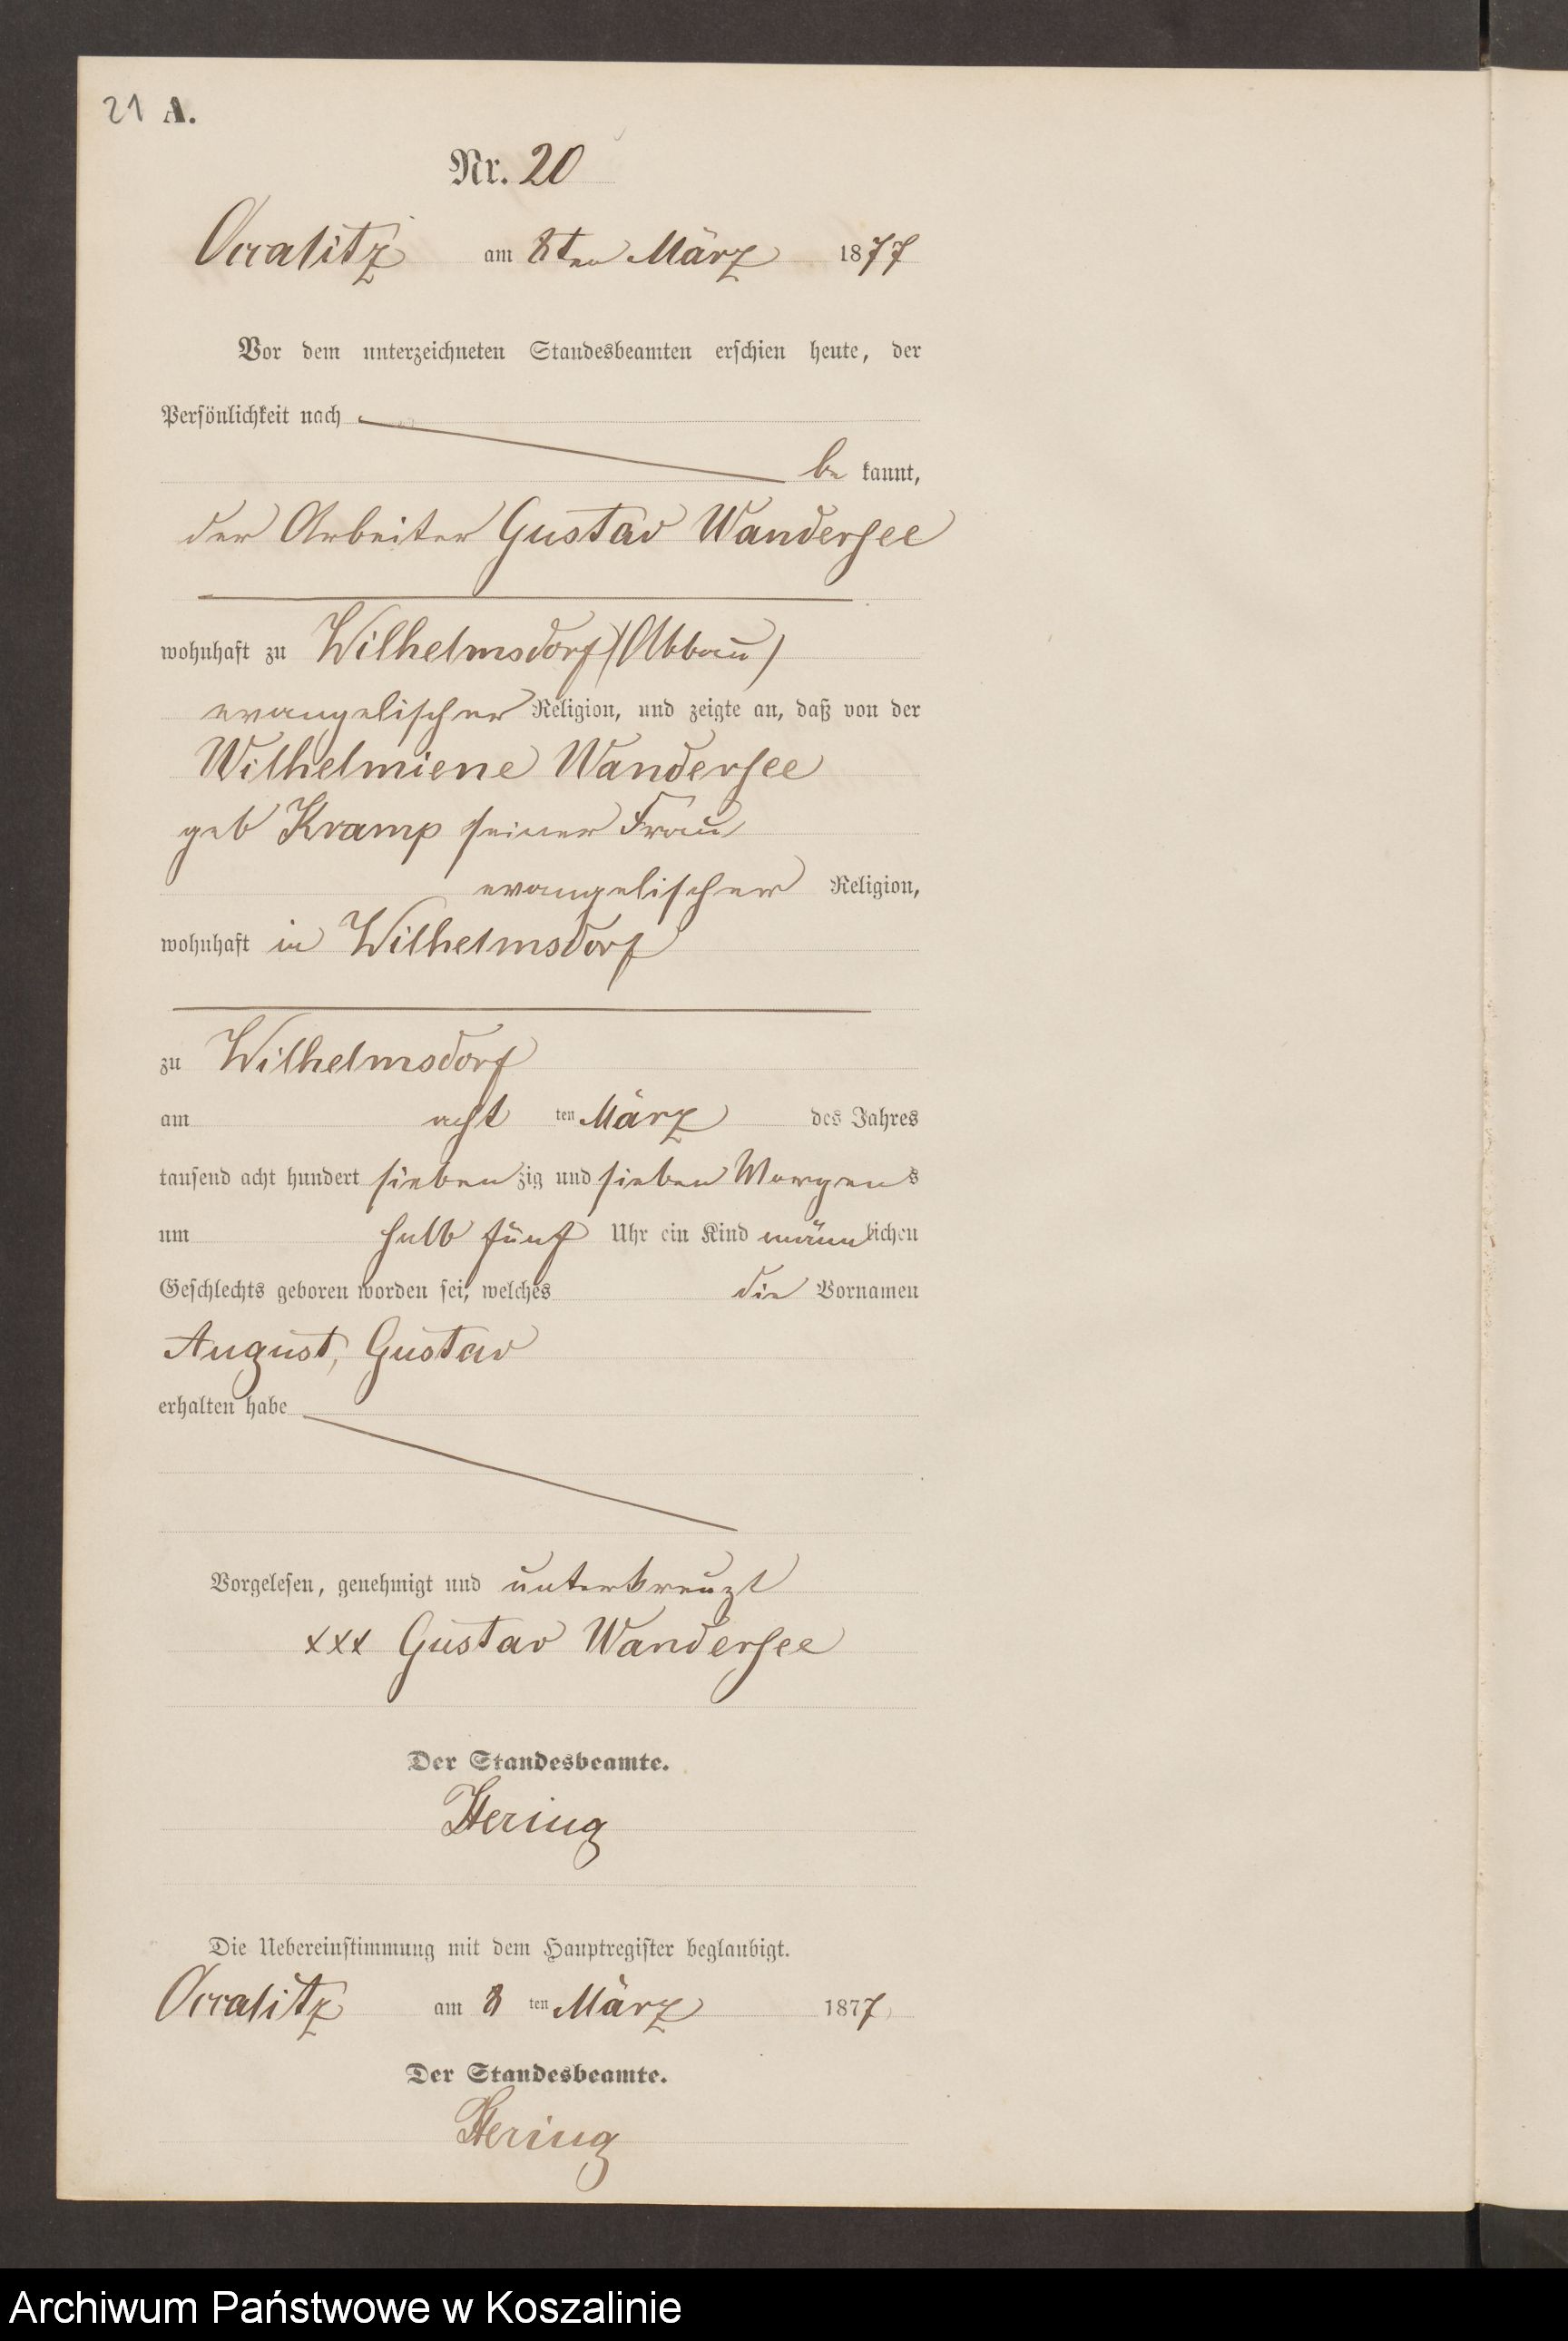 21 A.
Nr. 20
Occalitz am 8ten März 1877
Vor dem unterzeichneten Standesbeamten erschien heute, der
Persönlichkeit nach
be kannt,
der Arbeiter Gustav Wandersee
wohnhaft zu Wilhelmsdorf (Abbau)
evangelischer Religion, und zeigte an, daß von der
Wilhelmiene Wandersee
geb Kramp seiner Frau
evangelischer Religion,
wohnhaft in Wilhelmsdorf
zu Wilhelmsdorf
am acht ten März des Jahres
tausend acht hundert siebenzig und sieben Morgens
um halb fünf Uhr ein Kind männlichen
Geschlechts geboren worden sei, welches die Vornamen
August, Gustav
erhalten habe
Vorgelesen, genehmigt und unterkreuzt
xxx Gustav Wandersee
Der Standesbeamte.
Hering
Die Uebereinstimmung mit dem Hauptregister beglaubigt.
Occalitz am 8 ten März 1877
Der Standesbeamte.
Hering
Archiwum Państwowe w Koszalinie